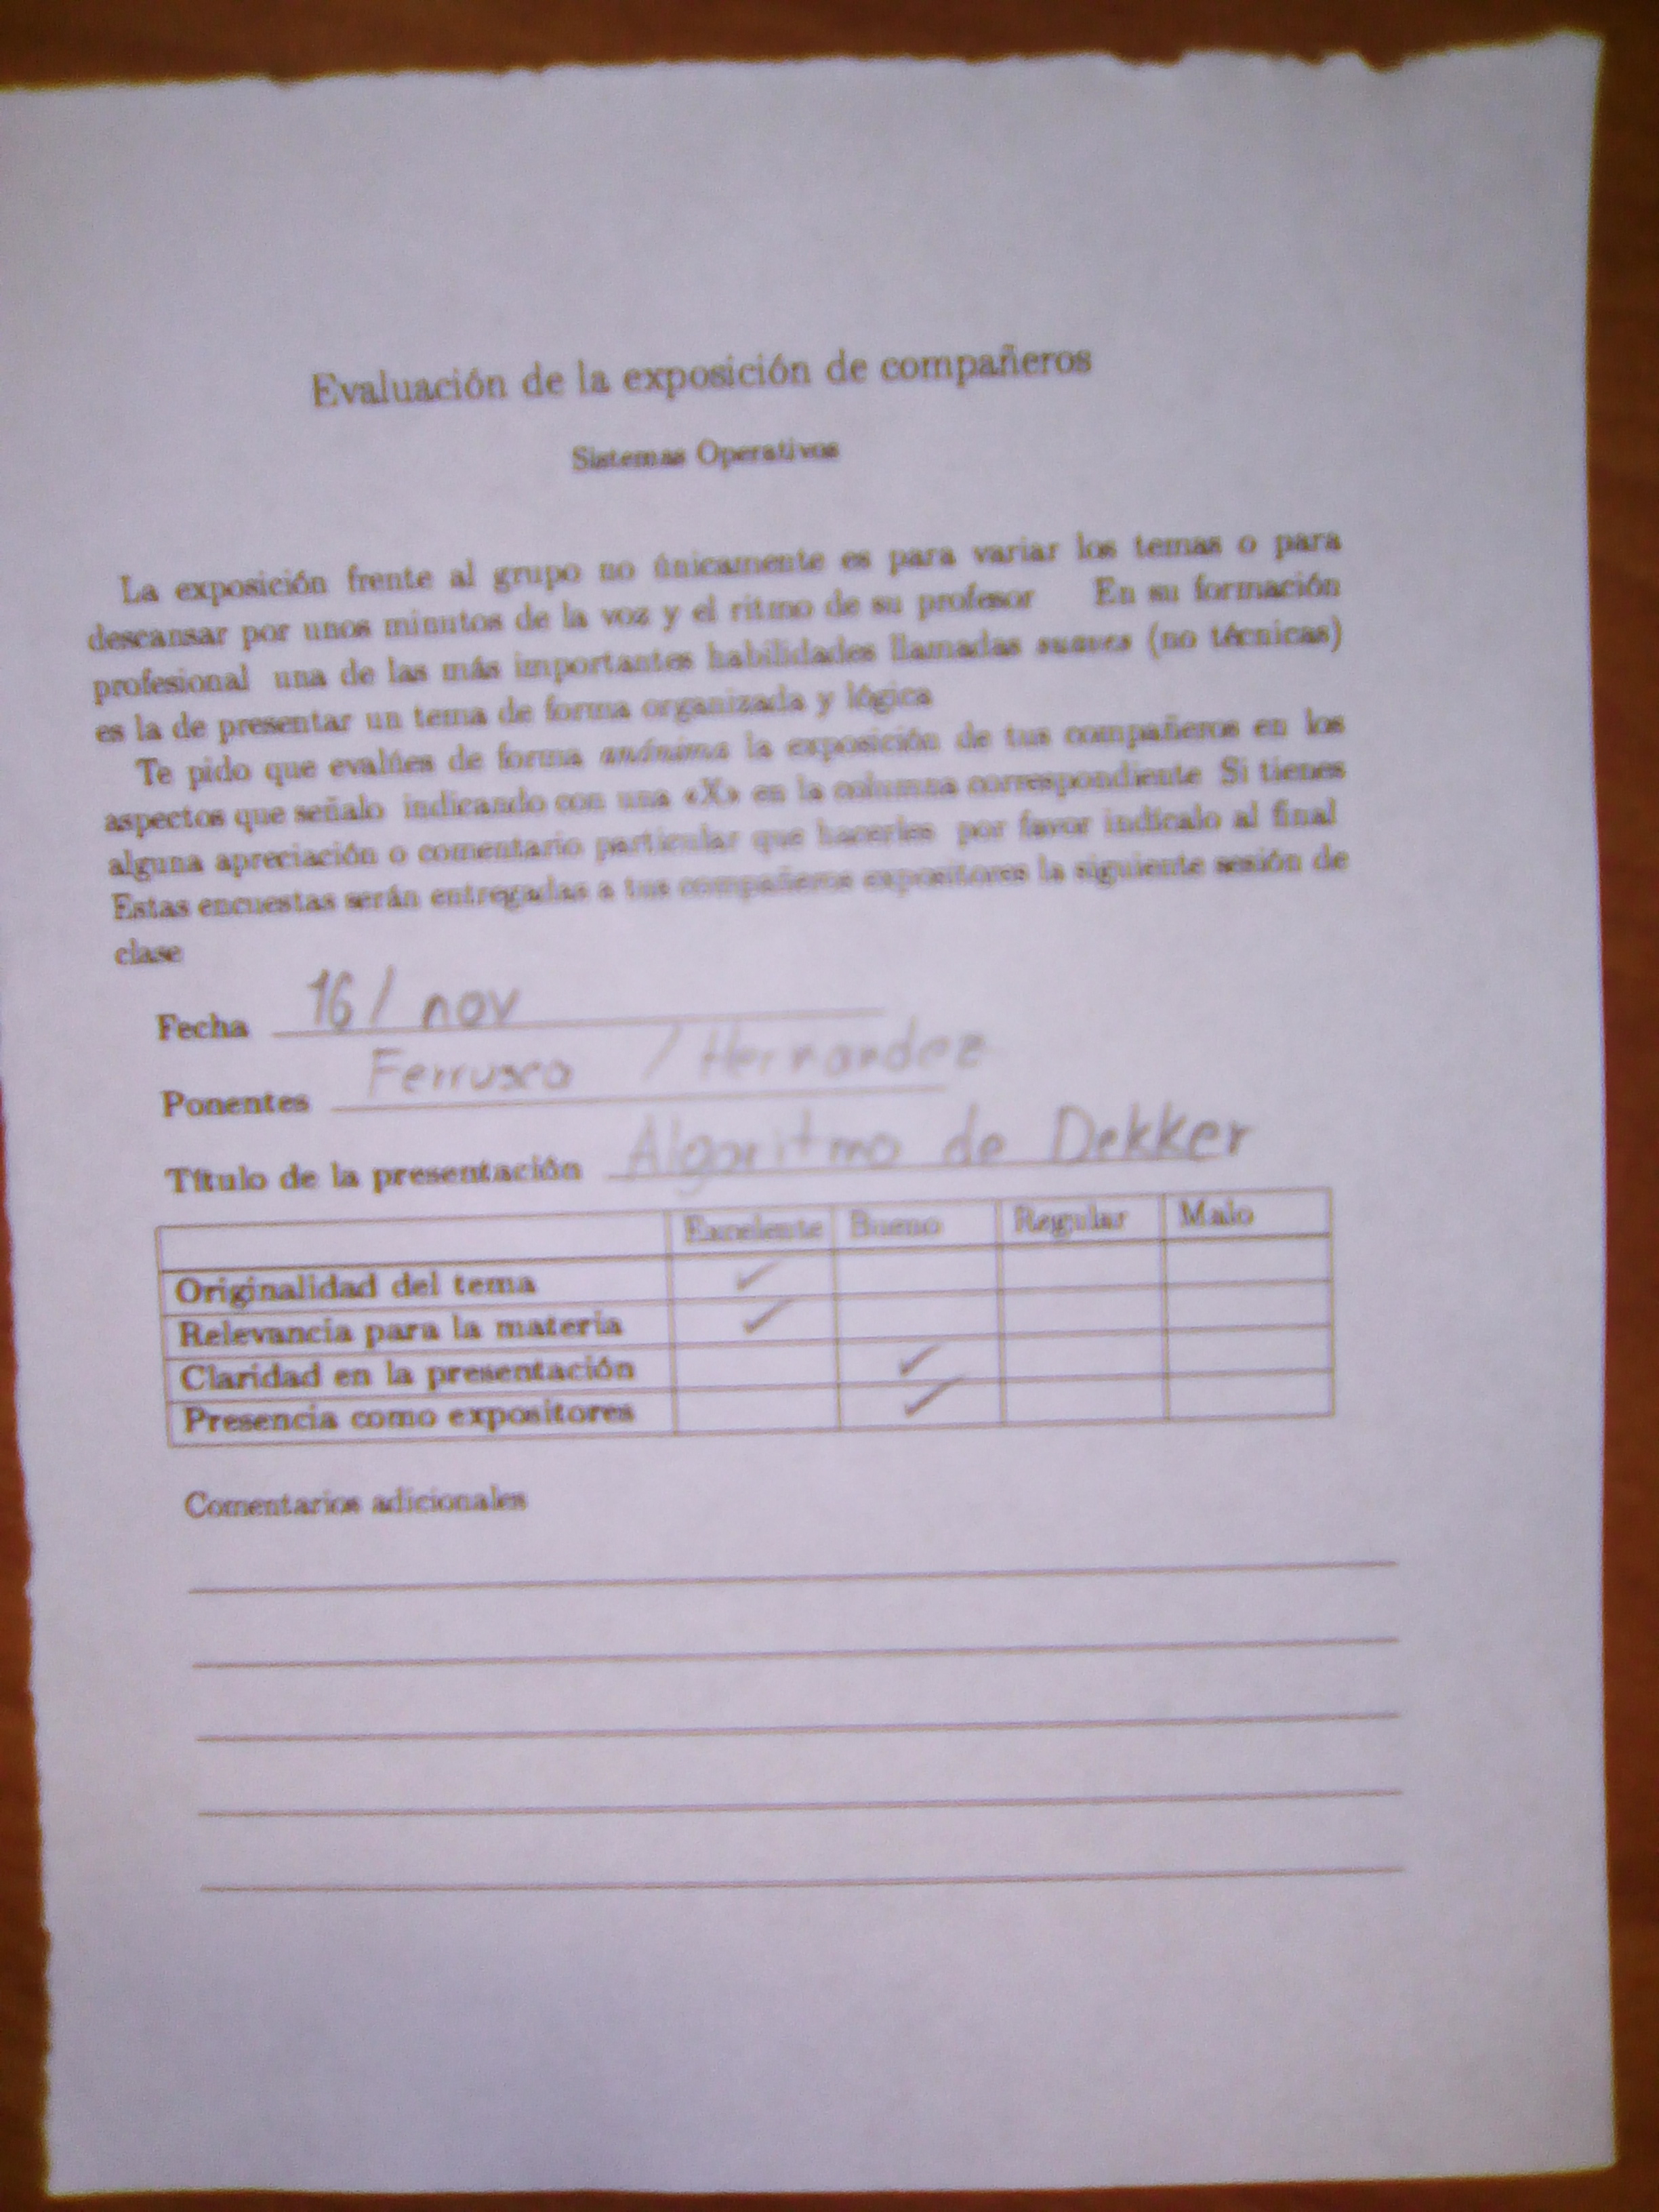 Evaluación de la exposición de compañeros
Sistemas Operativos
La exposición frente al grupo no únicamente es para variar los temas o para
descansar por unos minutos de la voz y el ritmo de su profesor En su formación
profesional una de las más importantes habilidades llamadas suaves (no técnicas)
es la de presentar un tema de forma organizada y lógica
Te pido que evalúes de forma anónima la exposición de tus compañeros en los
aspectos que señalo indicando con una «X» en la columna correspondiente Si tienes
alguna apreciación o comentario particular que hacerles por favor indícalo al final
Estas encuestas serán entregadas a tus compañeros expositores la siguiente sesión de
clase
Fecha 16/ nov
Ponentes Ferrusca / Hernandez
Título de la presentación Algoritmo de Dekker
Excelente Bueno Regular Malo
Originalidad del tema ✓
Relevancia para la materia ✓
Claridad en la presentación ✓
Presencia como expositores ✓
Comentarios adicionales